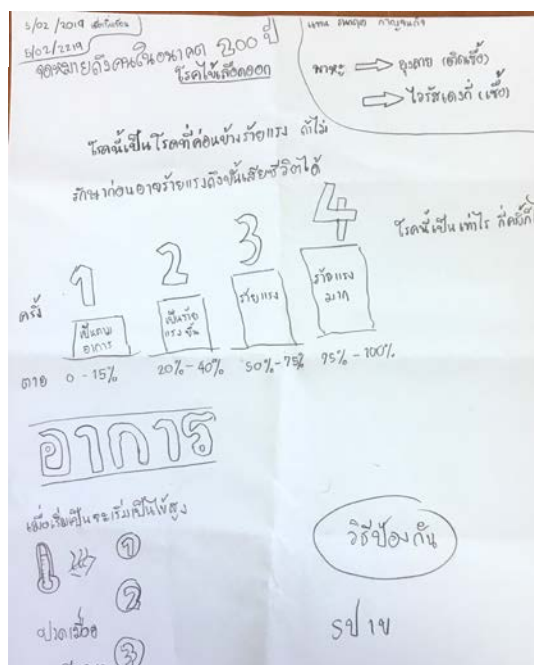 5/02/2019
5/02/2219
จดหมายถึงคนในอนาคต 200 ปี
โรคไข้เลือดออก
พาหะ ⇒ ยุงลาย (ติดเชื้อ)
⇒ ไวรัสเดงกี่ (เชื้อ)
โรคนี้เป็นโรคที่ค่อนข้างร้ายแรง ถ้าไม่
รักษาก่อนอาจร้ายแรงถึงขั้นเสียชีวิตได้
โรคนี้เป็นเท่าไร กี่ครั้งก็
ครั้ง 1 2 3 4
เป็นตามอาการ
เป็นร้ายแรงขึ้น
ร้ายแรง
ร้ายแรงมาก
ตาย 0 - 15% 20% - 40% 50% - 75% 75% - 100%
อาการ
เมื่อเริ่มเป็นจะเริ่มเป็นไข้สูง
1
2
ปวดเมื่อย
3
วิธีป้องกัน
5ป 1ข